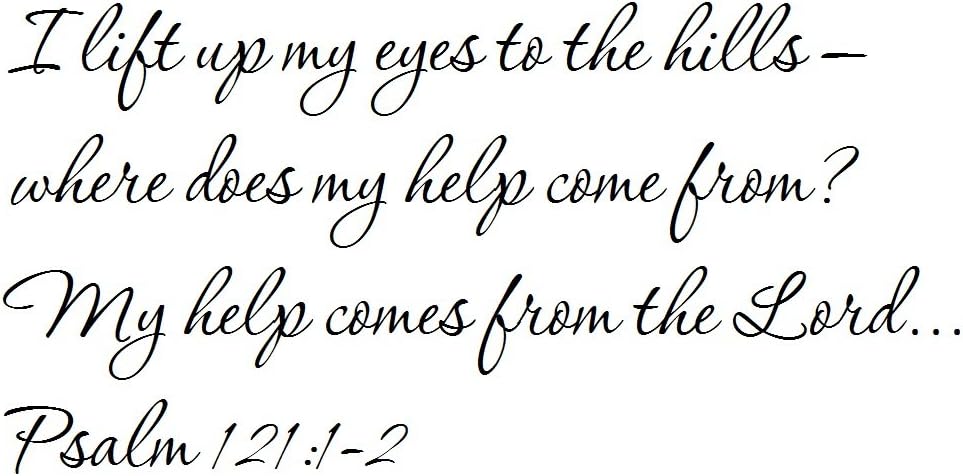 I lift up my eyes to the hills –
where does my help come from?
My help comes from the Lord...
Psalm 121:1-2